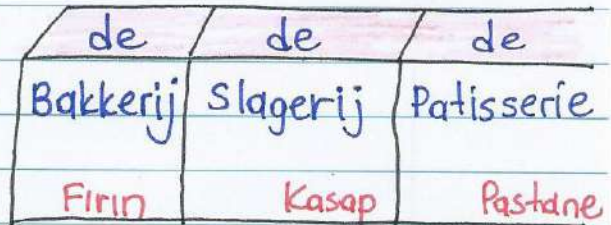 de de de
Bakkerij Slagerij Patisserie
Fırın Kasap Pastane